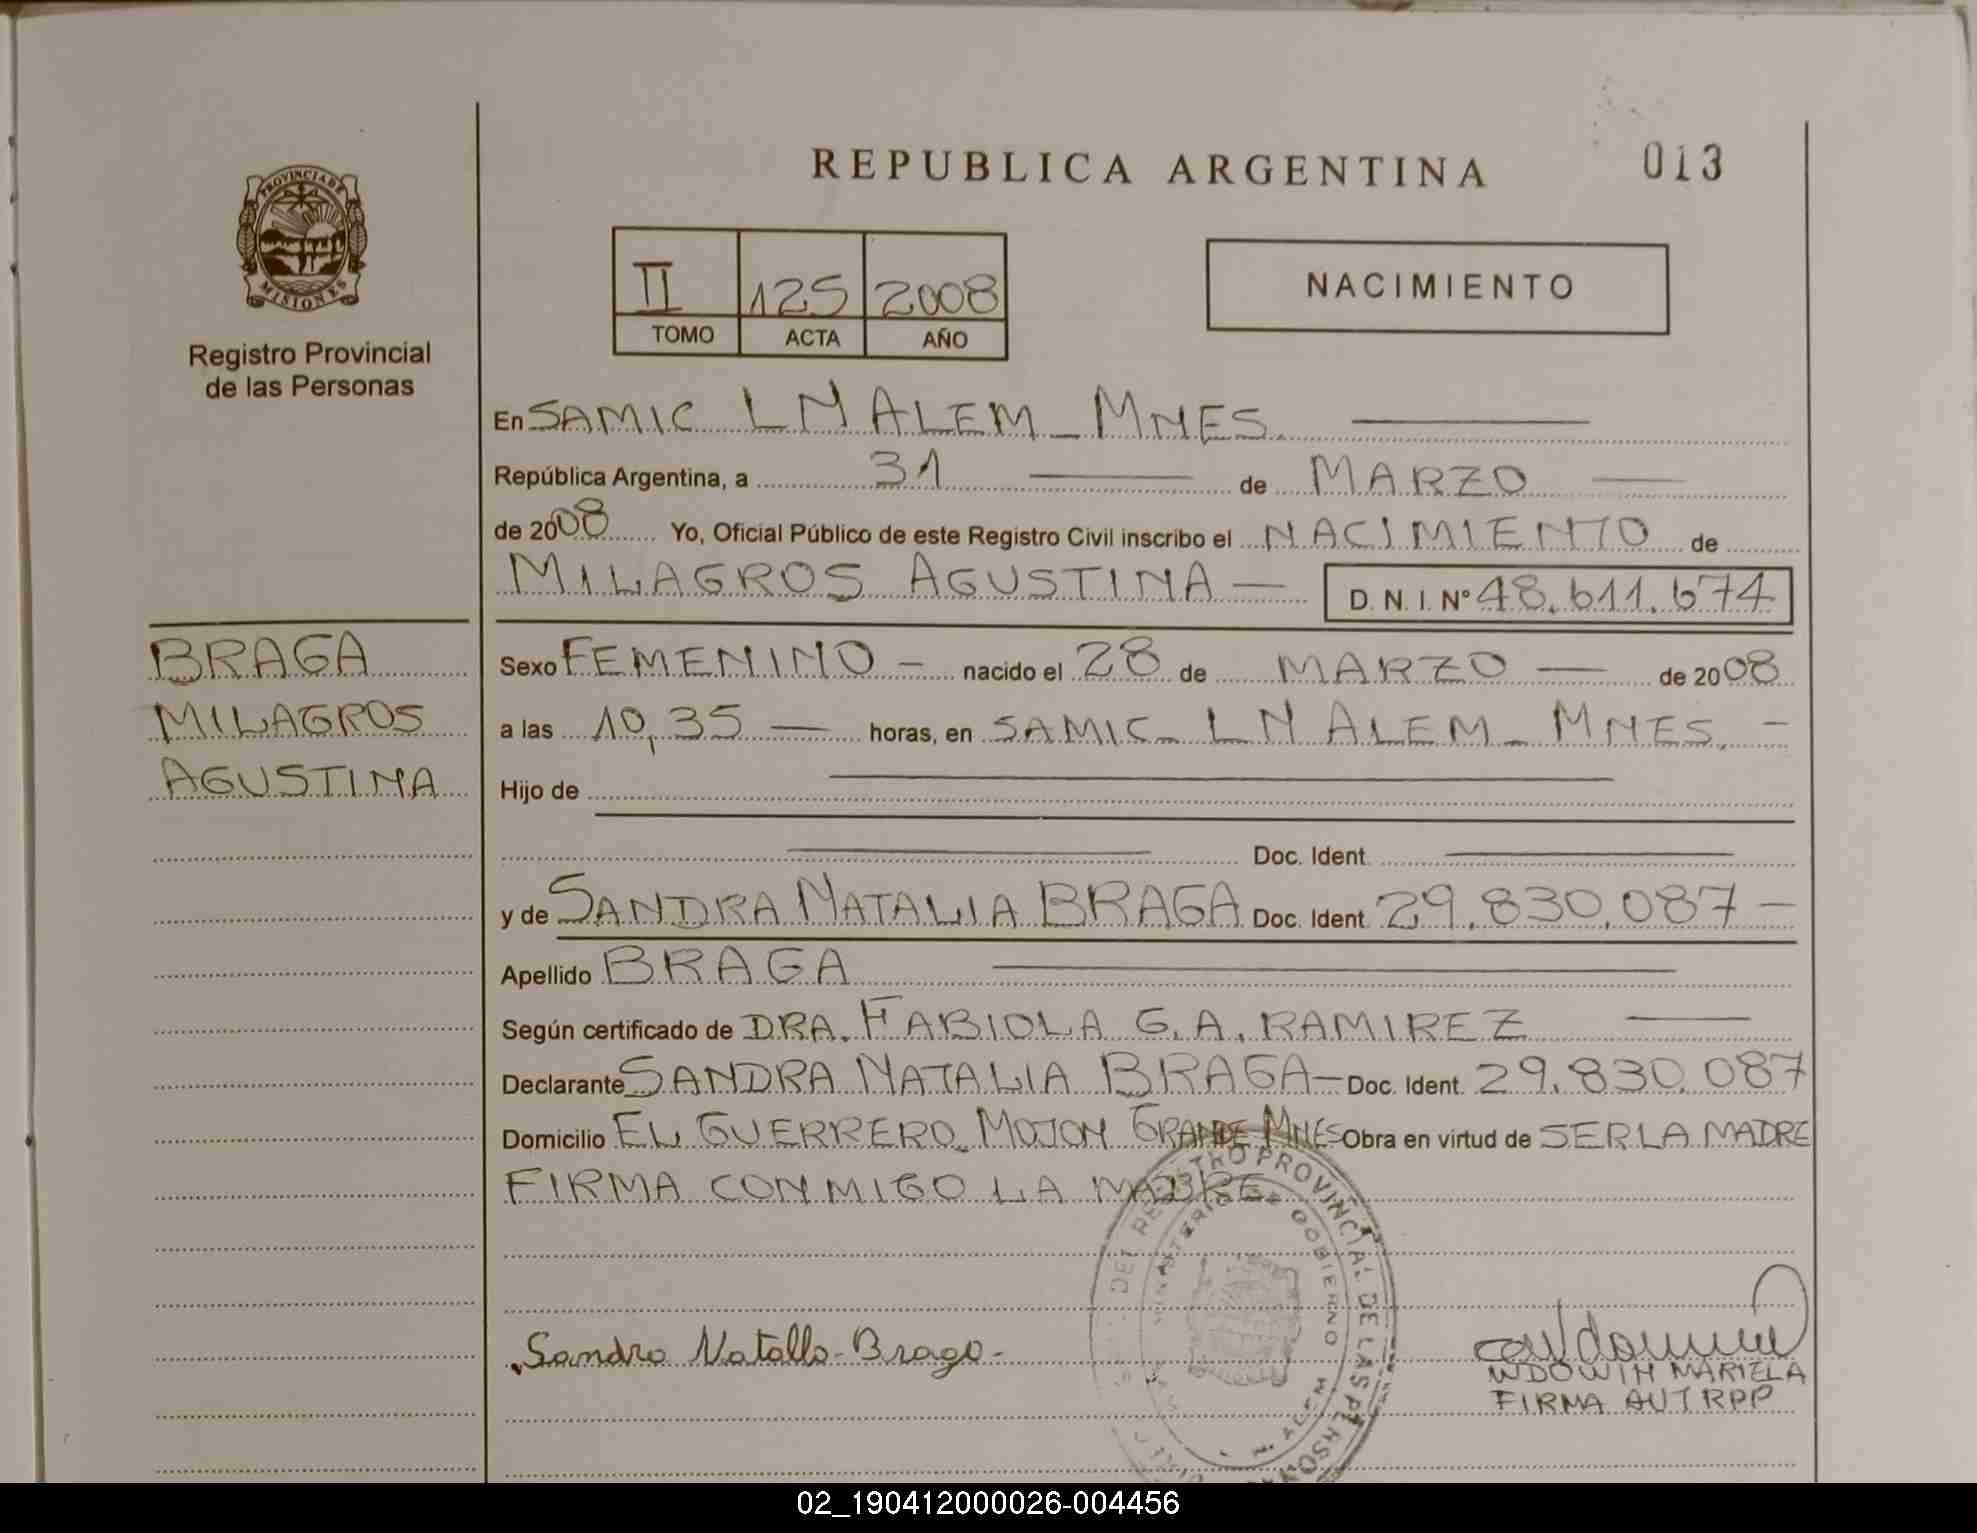 REPUBLICA ARGENTINA
013
PROVINCIA DE
MISIONES
Registro Provincial
de las Personas
II 125 2008
TOMO ACTA AÑO
NACIMIENTO
En SAMIC LN ALEM - MNES.
República Argentina, a 31 de MARZO
de 2008 Yo, Oficial Público de este Registro Civil inscribo el NACIMIENTO de
MILAGROS AGUSTINA — D. N. I. Nº 48.611.674
BRAGA
MILAGROS
AGUSTINA
Sexo FEMENINO - nacido el 28 de MARZO — de 2008
a las 10,35 — horas, en SAMIC - LN ALEM - MNES. -
Hijo de
Doc. Ident.
y de SANDRA NATALIA BRAGA Doc. Ident. 29.830.087 -
Apellido BRAGA
Según certificado de DRA. FABIOLA G. A. RAMIREZ
Declarante SANDRA NATALIA BRAGA - Doc. Ident. 29.830.087
Domicilio EL GUERRERO - MOJON GRANDE MNES Obra en virtud de SER LA MADRE
FIRMA CONMIGO LA MADRE
DEL REGISTRO PROVINCIAL DE LAS PERSONAS
MINISTERIO DE GOBIERNO
N. ALEM
Sandra Natalia Braga -
WDOWIN MARIELA
FIRMA AUT RPP
02_190412000026-004456